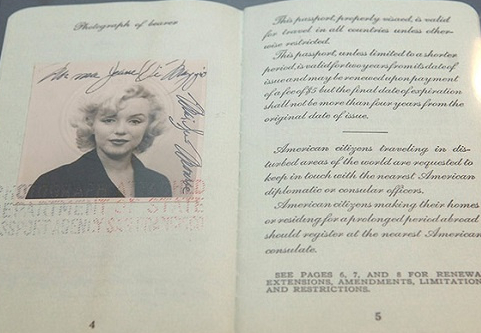 Photograph of bearer
Norma Jeane Di Maggio
Marilyn Monroe
PHOTOGRAPH ATTACHED
DEPARTMENT OF STATE
PASSPORT AGENCY SAN FRANCISCO
4
This passport, properly visaed, is valid
for travel in all countries unless other-
wise restricted.
This passport, unless limited to a shorter
period, is valid for two years from its date of
issue and may be renewed upon payment
of a fee of $5 but the final date of expiration
shall not be more than four years from the
original date of issue.
American citizens traveling in dis-
turbed areas of the world are requested to
keep in touch with the nearest American
diplomatic or consular officers.
American citizens making their homes
or residing for a prolonged period abroad
should register at the nearest American
consulate.
SEE PAGES 6, 7, AND 8 FOR RENEWA
EXTENSIONS, AMENDMENTS, LIMITATION
AND RESTRICTIONS.
5